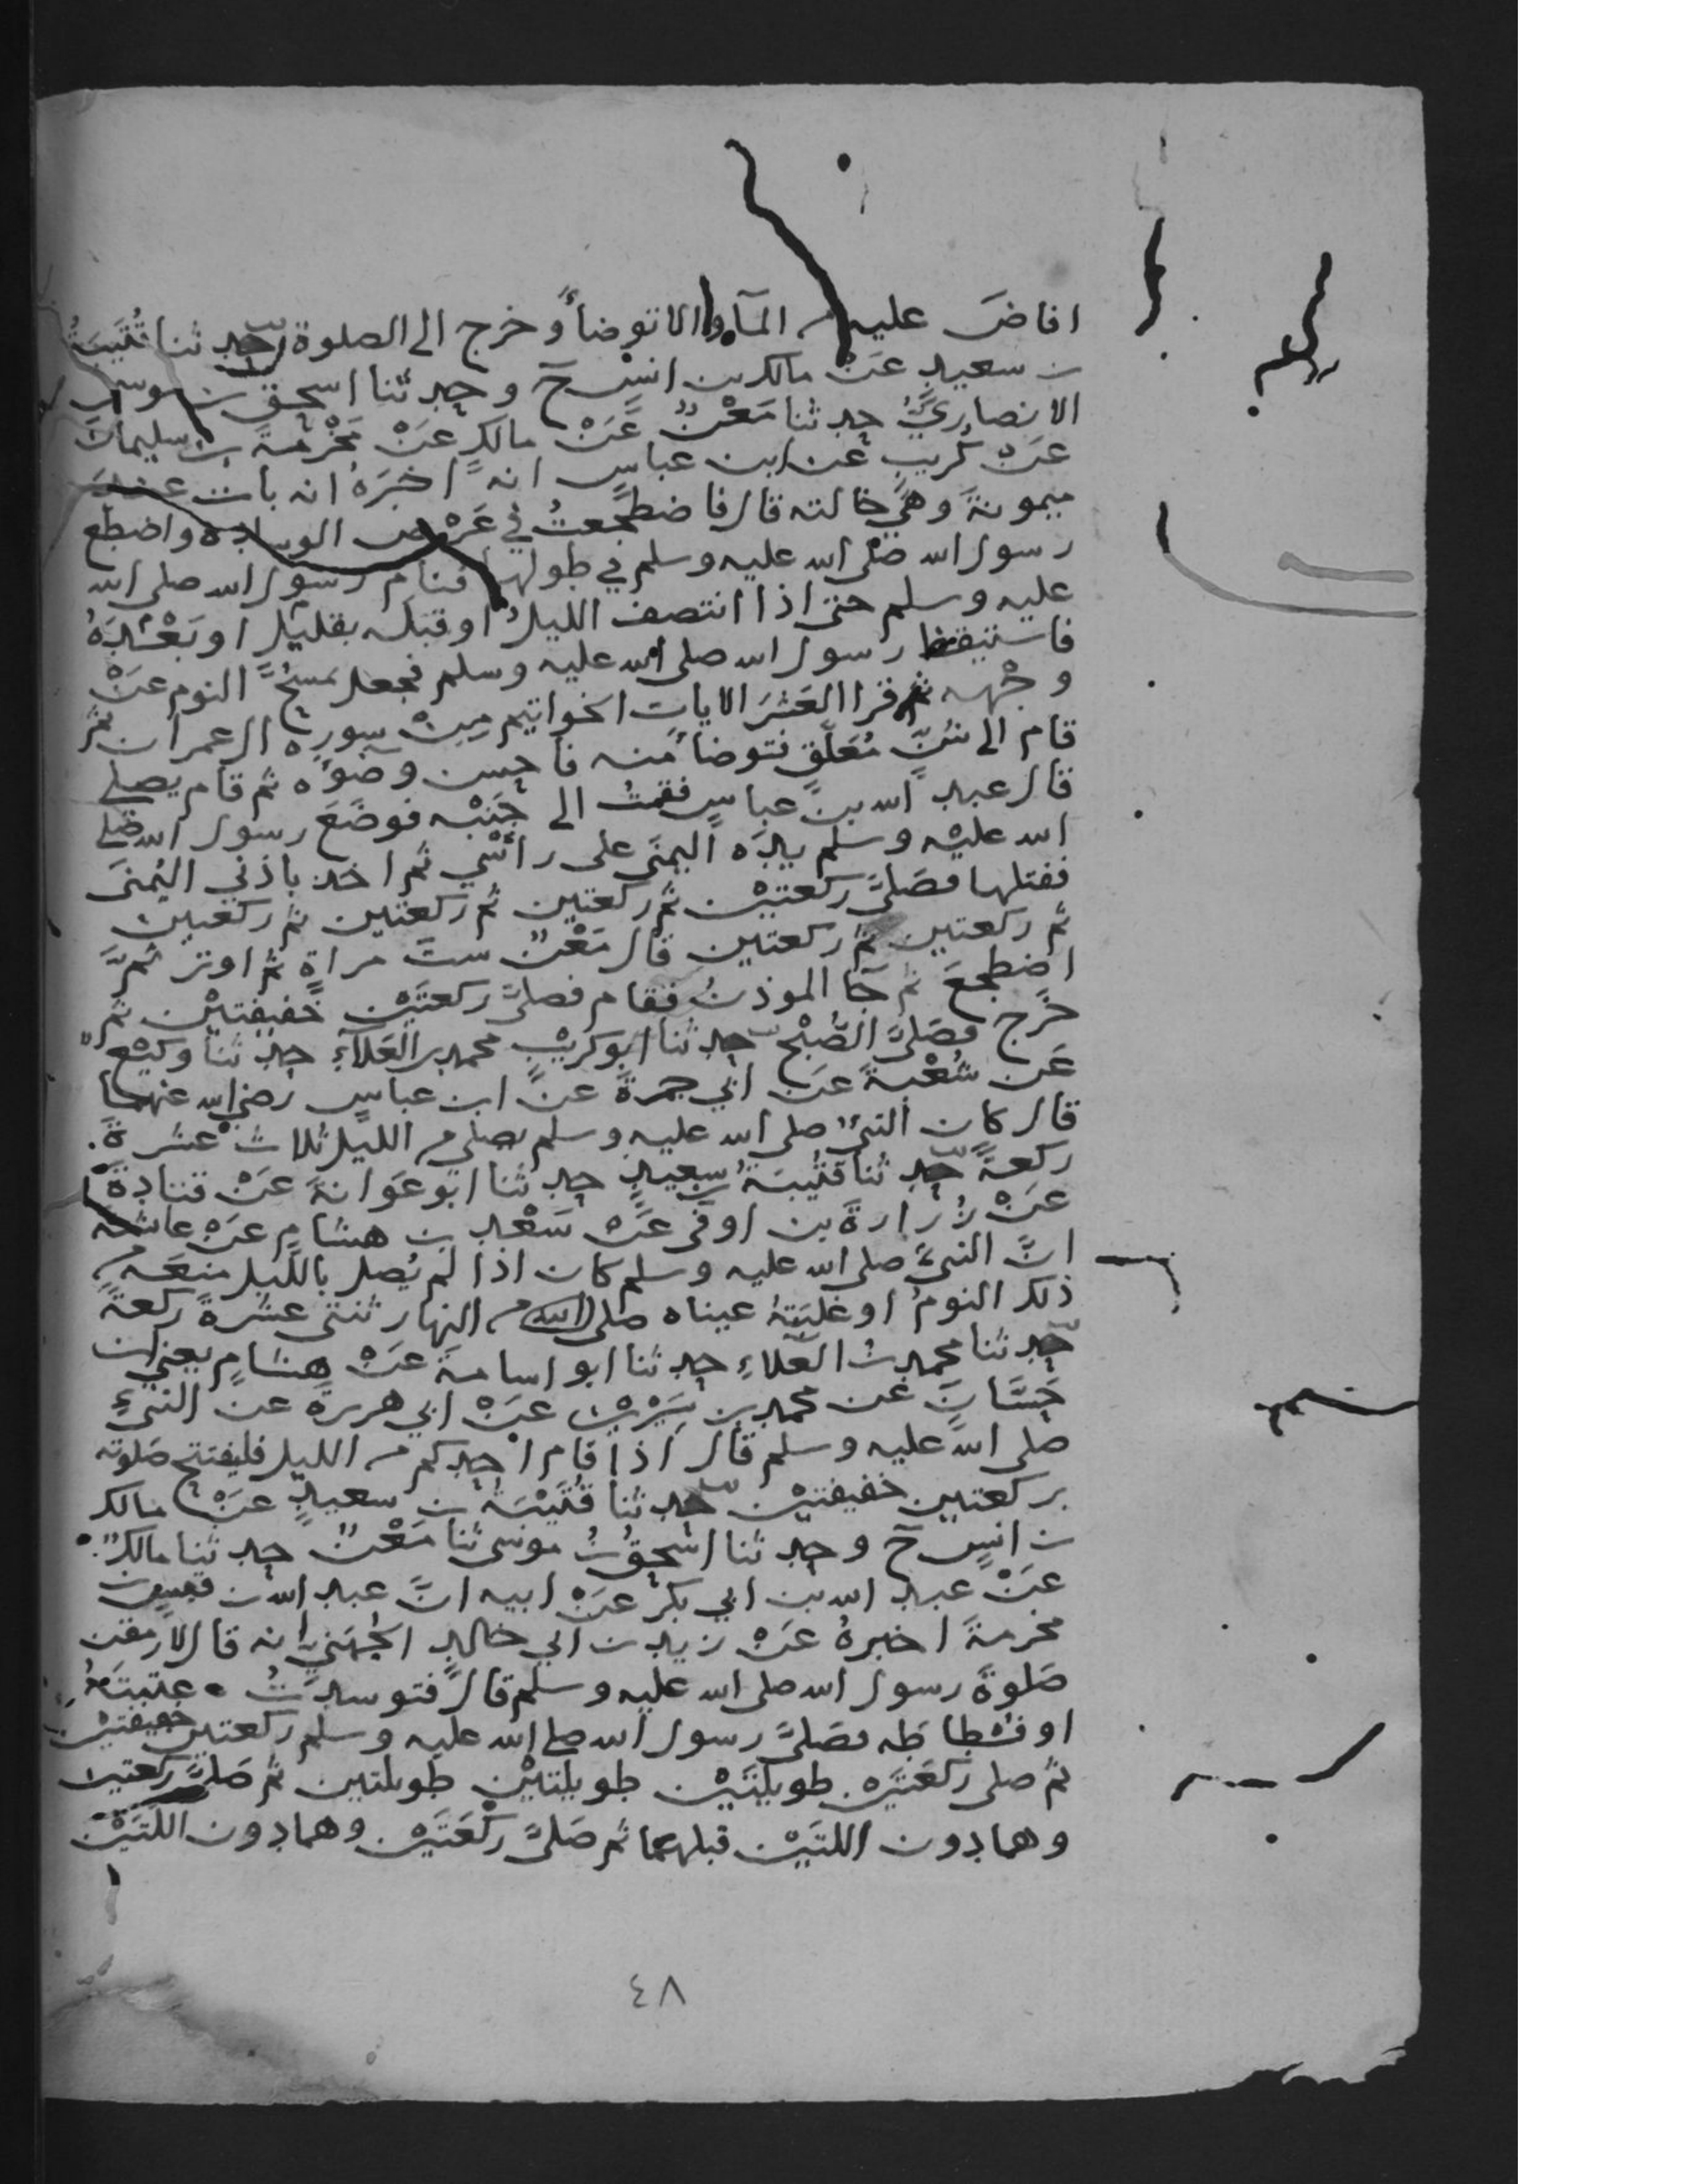 افاضَ عليه من المآء والا توضأَ وخرج الى الصلوة حدثنا قُتَيبَةُ
بن سعيدٍ عَنْ مالك بن انسٍ ح وحدثنا اسحق بن موسى
الانصاريُّ حدثنا مَعْنٌ عَنْ مالكٍ عَنْ مَخْرَمَةَ بن سليمانَ
عَنْ كُريبٍ عن ابن عباسٍ انه اخبَرَهُ انه بات عند
ميمونةَ وهي خالته قال فاضطجعتُ في عَرْض الوسادة واضطجع
رسول الله صلى الله عليه وسلم في طولها فنام رسول الله صلى الله
عليه وسلم حتى اذا انتصف الليلُ او قبله بقليلٍ او بَعْدَهُ
فاستيقظ رسول الله صلى الله عليه وسلم فجعل يمسحُ النوم عَنْ
وجْهه ثم قرا العَشَرَ الاياتِ الخواتيم مِنْ سورة ال عمران ثم
قام الى شَنٍّ مُعَلَّقٍ فتوضأ منه فاحسن وضوءه ثم قام يصلي
قال عبد الله بن عباسٍ فقمتُ الى جَنْبه فوضَعَ رسول الله صلى
الله عليْه وسلم يدَه اليمنَى على رأسْي ثم اخذ باذني اليُمنىَ
ففتلها فصَلىَّ ركعتيْن ثم ركعتين ثم ركعتين ثم ركعتين
ثم ركعتين ثم ركعتين قال مَعْنٌ ستَّ مراةٍ ثم اوتر ثمَّ
اضطجعَ ثم جآ الموذنُ فقام فصلىَّ ركعتَيْن خفيفتيْن ثم
خرج فصَلىَّ الصُّبْح حدثنا ابو كريْبٍ محمد بن العَلآءِ حدثنا وكيْعٌ
عَن شُعْبةَ عَن ابي جمرةَ عنْ ابن عباسٍ رضي الله عنهما
قال كان النبيُّ صلى الله عليه وسلم يصلي من الليل ثلاث عَشرةَ
ركعةً حدثنا قتُيبَةُ بن سعيدٍ حدثنا ابو عَوانةَ عَنْ قتادةَ
عَنْ زُرارةَ بن اوفَى عَنْ سَعْد بن هشامٍ عَنْ عائشةَ
انَّ النبيَّ صلى الله عليه وسلم كان اذا لم يُصل بالليل منعَه من
ذلك النومُ او غلبَتهُ عيناه صلى الله من النهار ثنتي عشرةَ ركعةً
حدثنا محمد بنُ العَلاءِ حدثنا ابو اسامةَ عَنْ هشامٍ يعني بن
حَسَّانَ عَن محمد بن سيْريْن عَنْ ابي هريرةَ عن النبيِّ
صلى الله عليه وسلم قال اذا قام احدكم من الليل فليفتتح صَلوته
بركعتين خفيفتيْن حدثنا قُتَيْبَةُ بن سعيدٍ عَنْ مالك
بن انسٍ ح وحدثنا اسْحقُ بنُ موسى ثنا مَعْنٌ حدثنا مالكٌ
عَنْ عبد الله بن ابي بكرٍ عَنْ ابيه انَّ عبد الله بن قيس بن
مخرمةَ اخبرهُ عَنْ زيد بن ابي خالدٍ الجُهَنيِّ انه قال لارمقن
صَلوةَ رسول الله صلى الله عليه وسلم قال فتوسدتُ عتبتَهُ
او فسُطاطَه فصَلىَّ رسول الله صلى الله عليه وسلم ركعتين خفيفتيْن
ثم صلى ركعَتَيْن طويلتَيْن طويلتيْن طويلتين ثم صَلىَّ ركعتين
وهما دون اللتَيْن قبلهما ثم صَلىَّ ركْعَتَيْن وهما دون اللتَيْن
٤٨